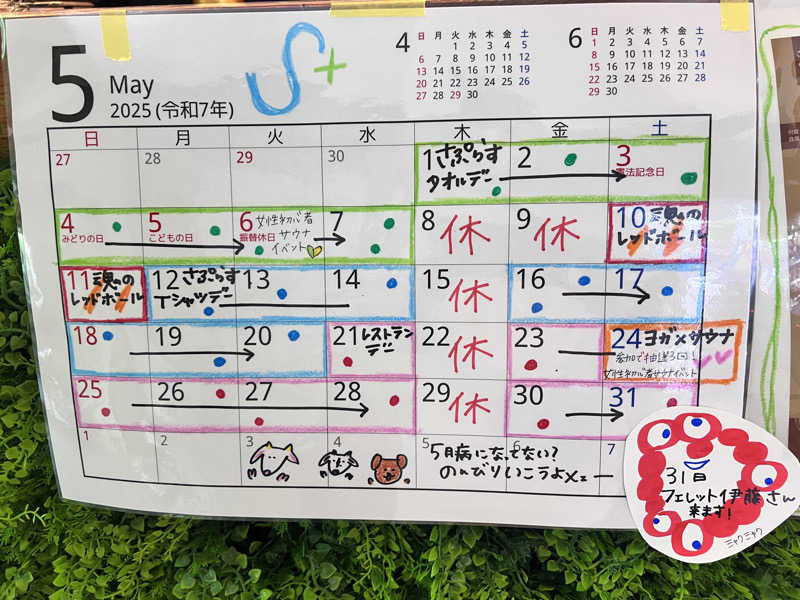 5
May
2025 (令和7年)
S+
4
日 月 火 水 木 金 土
1 2 3 4 5
6 7 8 9 10 11 12
13 14 15 16 17 18 19
20 21 22 23 24 25 26
27 28 29 30
6
日 月 火 水 木 金 土
1 2 3 4 5 6 7
8 9 10 11 12 13 14
15 16 17 18 19 20 21
22 23 24 25 26 27 28
29 30
日 月 火 水 木 金 土
27 28 29 30 1 さぷらす 2 3
タオルデー
憲法記念日
4 5 6 女性初心者 7 8 休 9 休 10 魂の
みどりの日 こどもの日 振替休日 サウナ
イベント
レッドボール
11 魂の 12 さぷらす 13 14 15 休 16 17
レッドボール Tシャツデー
18 19 20 21 レストラン 22 休 23 24 ヨガ×サウナ
デー
参加で抽選3回!
女性初心者サウナイベント
25 26 27 28 29 休 30 31
1 2 3 4 5 6 7
5月病になってない?
のんびりいこうよ
31日
フェレット伊藤さん
来ます!
ミャクミャク